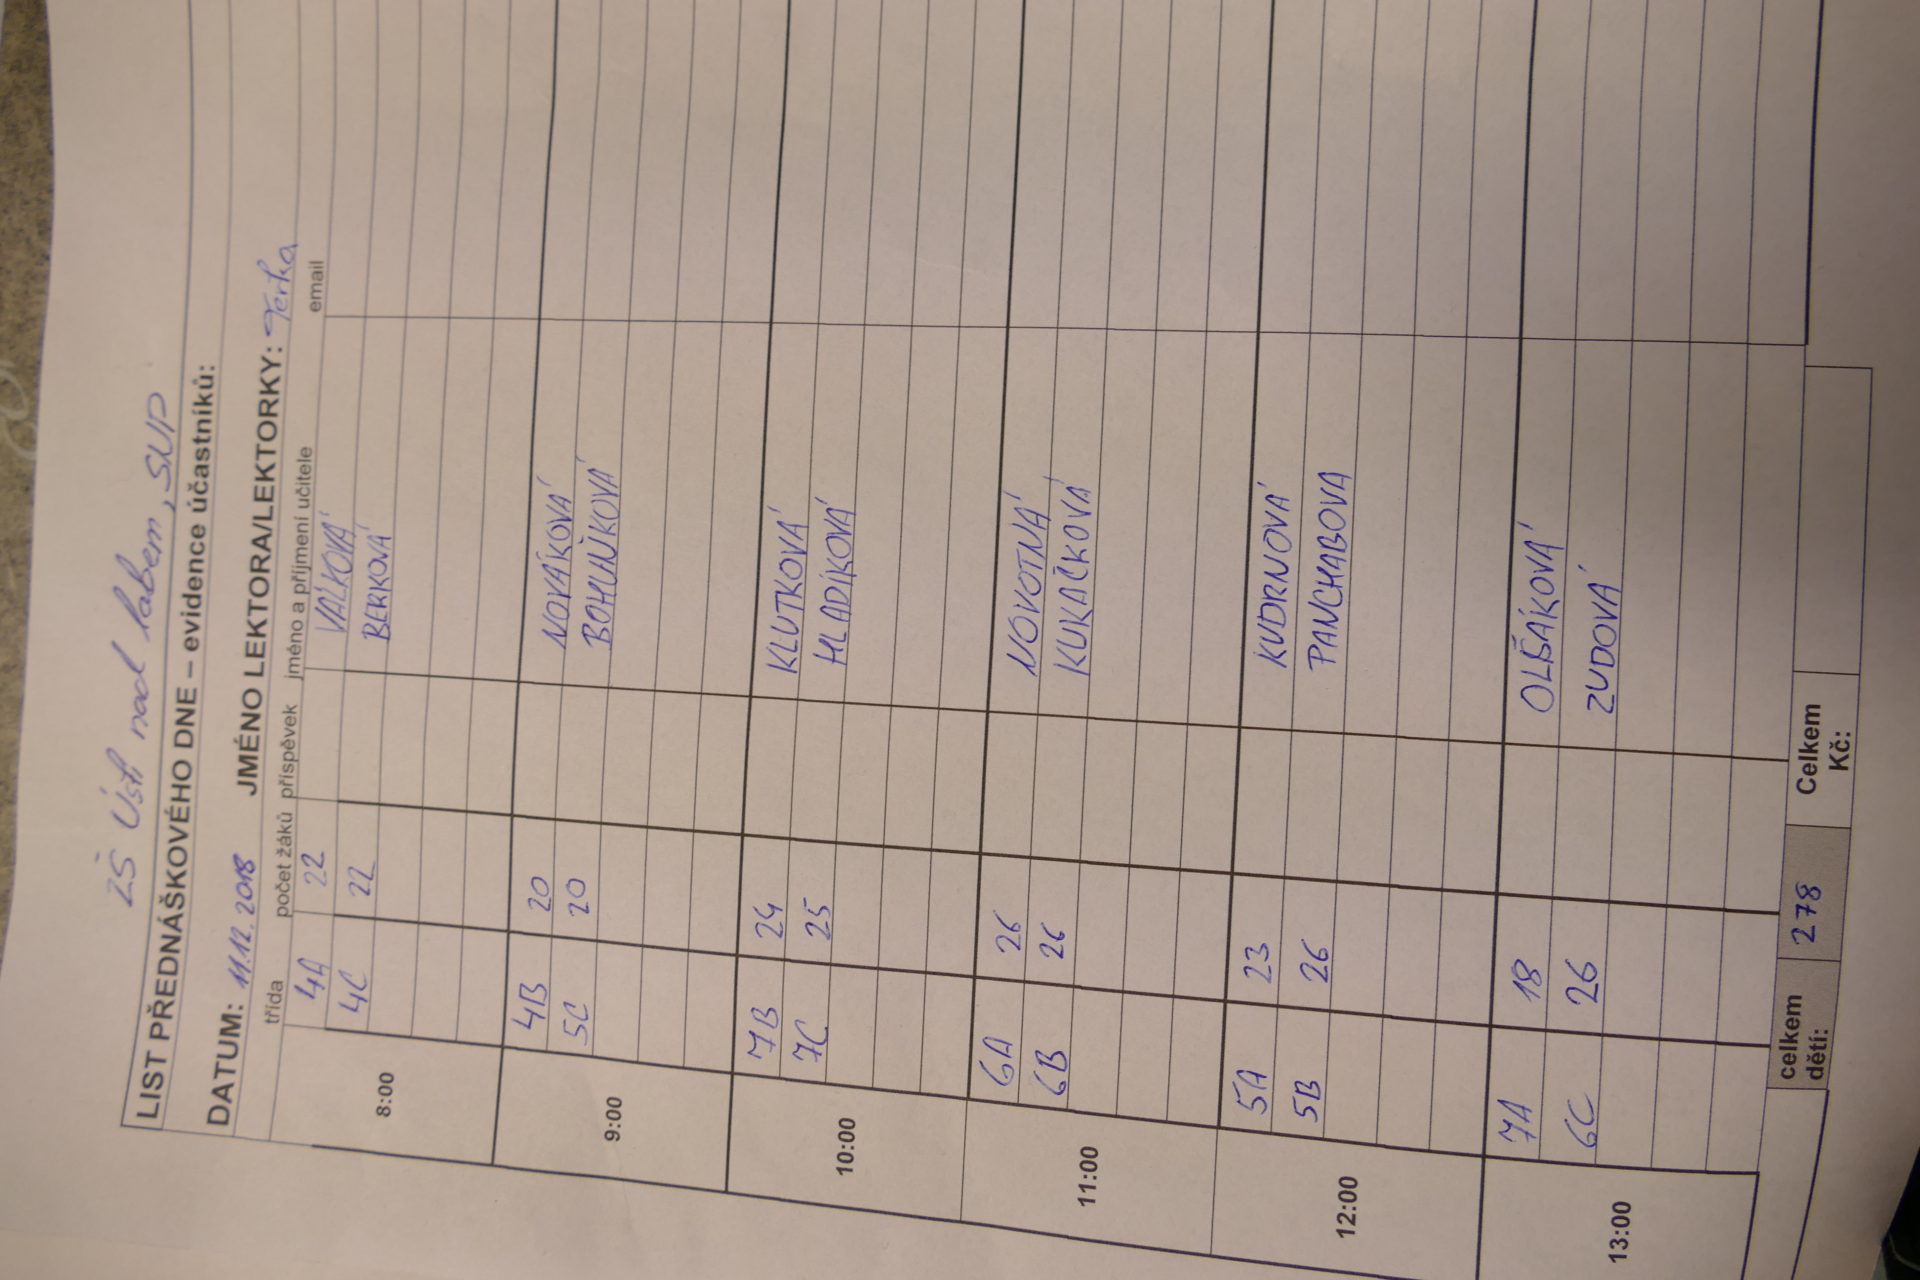 ZŠ Ústí nad Labem, SUP
LIST PŘEDNÁŠKOVÉHO DNE – evidence účastníků:
DATUM: 11.12.2018 JMÉNO LEKTORA/LEKTORKY: Terka
třída počet žáků příspěvek jméno a příjmení učitele email
8:00
4A 22 VÁLKOVÁ
4C 22 BERKOVÁ
9:00
4B 20 NOVÁKOVÁ
5C 20 BOHUNKOVÁ
10:00
7B 24 KLUTKOVÁ
7C 25 HLADÍKOVÁ
11:00
6A 26 NOVOTNÁ
6B 26 KUKAČKOVÁ
12:00
5A 23 KUDRNOVÁ
5B 26 PANCHABOVA
13:00
7A 18 OLŠÁKOVÁ
6C 26 ZUDOVÁ
celkem dětí: 278 Celkem Kč: